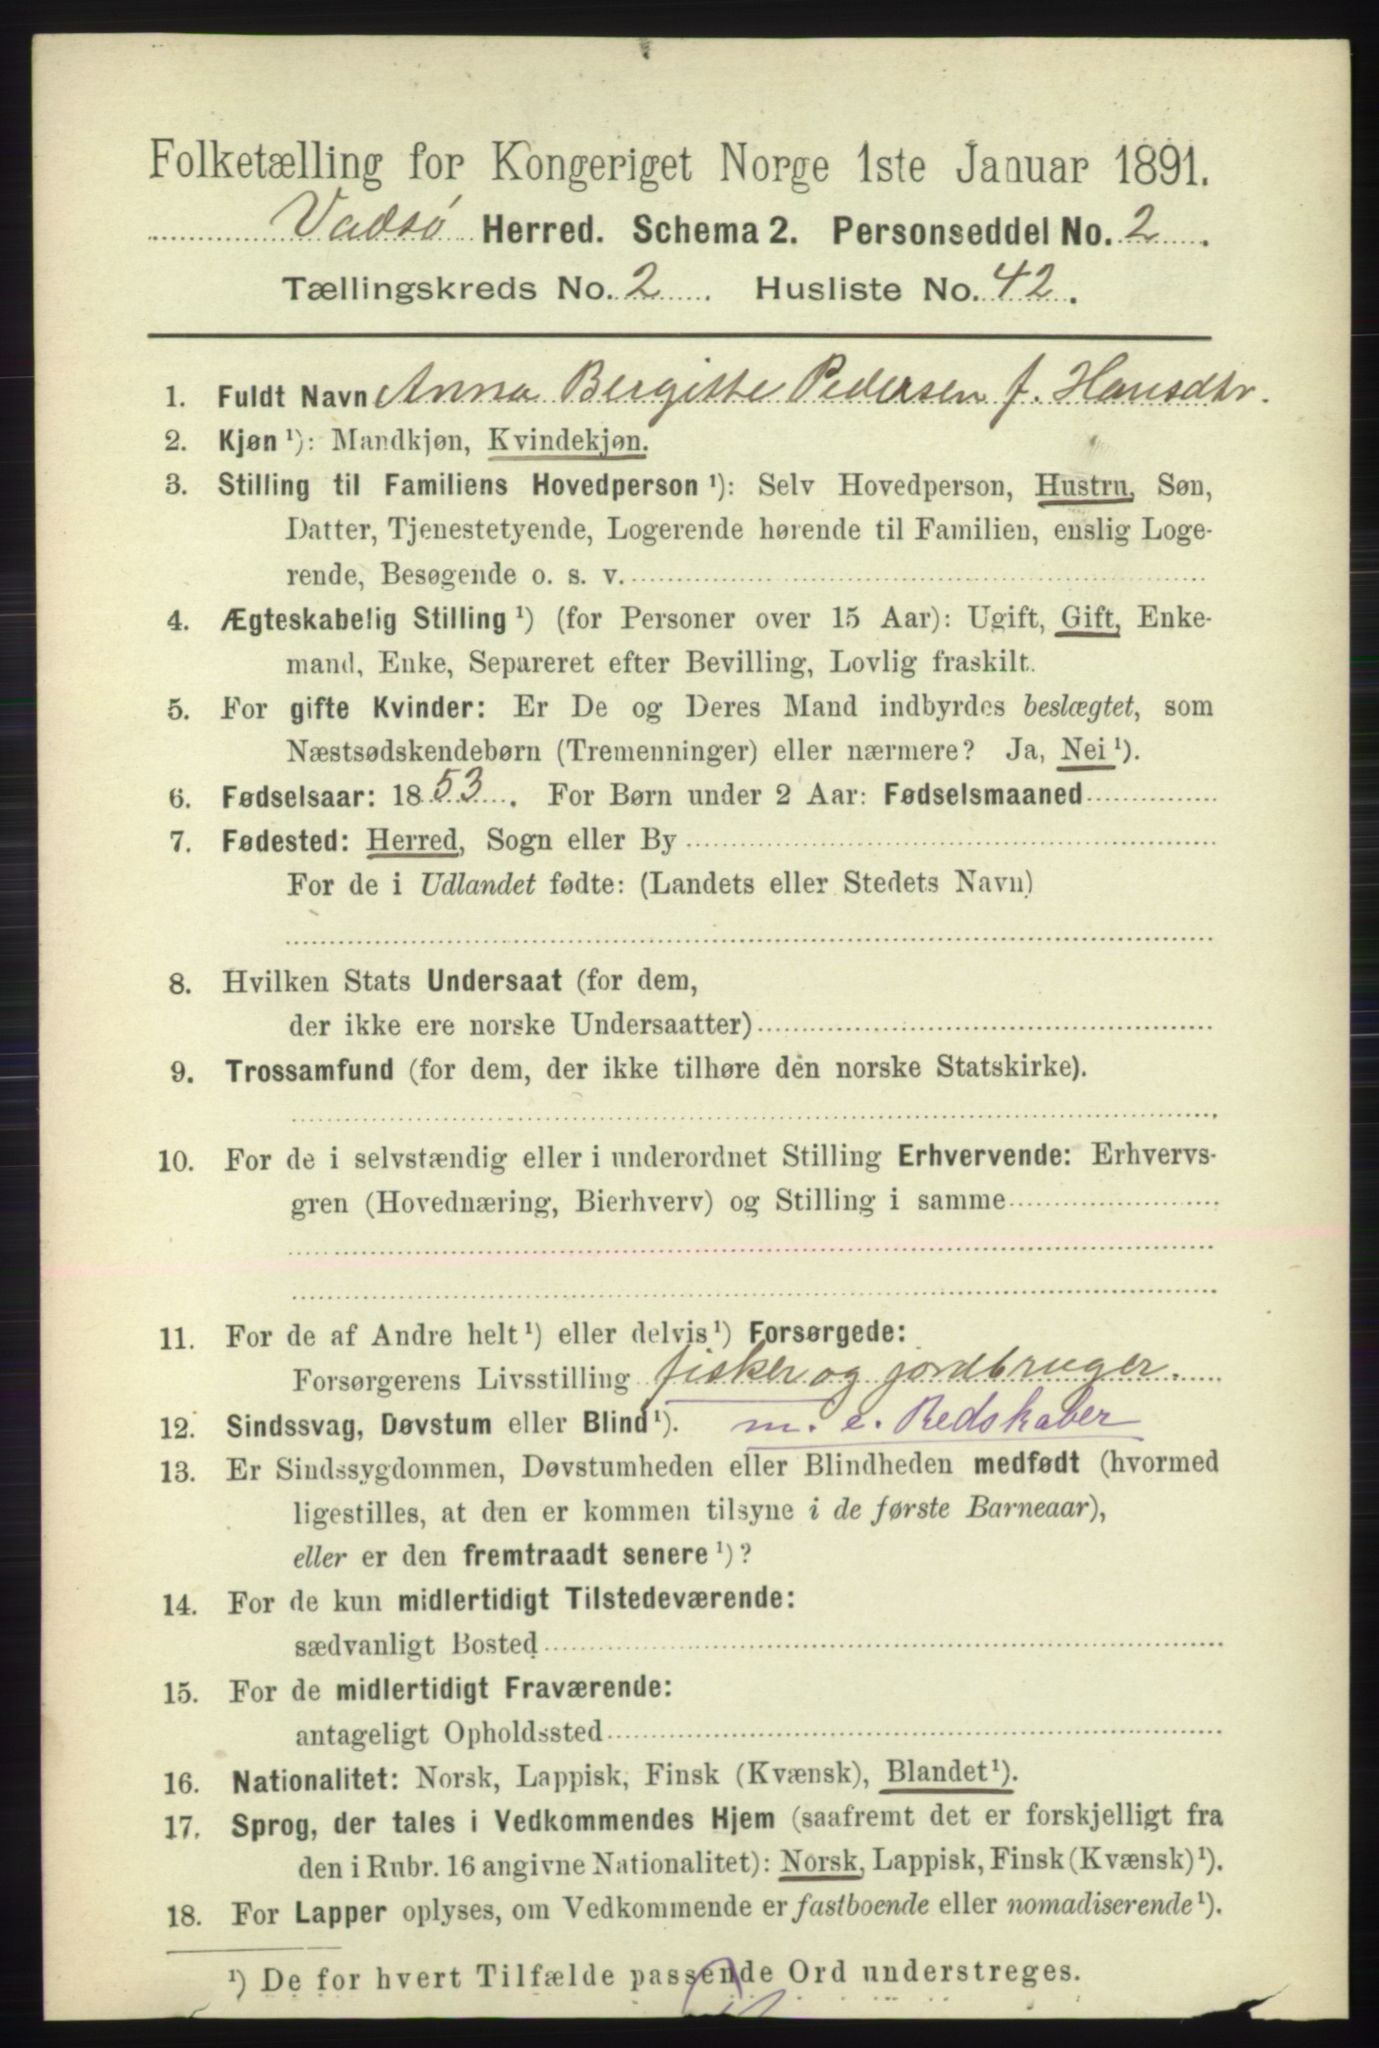 Folketælling for Kongeriget Norge 1ste Januar 1891.
Vadsø Herred. Schema 2. Personseddel No. 2.
Tællingskreds No. 2. Husliste No. 42.
1. Fuldt Navn Anna Bergitte Pedersen f. Hansdtr.
2. Kjøn ¹): Mandkjøn, Kvindekjøn.
3. Stilling til Familiens Hovedperson ¹): Selv Hovedperson, Hustru, Søn,
Datter, Tjenestetyende, Logerende hørende til Familien, enslig Loge-
rende, Besøgende o. s. v.
4. Ægteskabelig Stilling ¹) (for Personer over 15 Aar): Ugift, Gift, Enke-
mand, Enke, Separeret efter Bevilling, Lovlig fraskilt.
5. For gifte Kvinder: Er De og Deres Mand indbyrdes beslægtet, som
Næstsødskendebørn (Tremenninger) eller nærmere? Ja, Nei ¹).
6. Fødselsaar: 1853. For Børn under 2 Aar: Fødselsmaaned
7. Fødested: Herred, Sogn eller By
For de i Udlandet fødte: (Landets eller Stedets Navn)
8. Hvilken Stats Undersaat (for dem,
der ikke ere norske Undersaatter)
9. Trossamfund (for dem, der ikke tilhøre den norske Statskirke).
10. For de i selvstændig eller i underordnet Stilling Erhvervende: Erhvervs-
gren (Hovednæring, Bierhverv) og Stilling i samme
11. For de af Andre helt ¹) eller delvis ¹) Forsørgede:
Forsørgerens Livsstilling fisker og jordbruger.
12. Sindssvag, Døvstum eller Blind ¹). m. e. Redskaber
13. Er Sindssygdommen, Døvstumheden eller Blindheden medfødt (hvormed
ligestilles, at den er kommen tilsyne i de første Barneaar),
eller er den fremtraadt senere ¹)?
14. For de kun midlertidigt Tilstedeværende:
sædvanligt Bosted
15. For de midlertidigt Fraværende:
antageligt Opholdssted
16. Nationalitet: Norsk, Lappisk, Finsk (Kvænsk), Blandet ¹).
17. Sprog, der tales i Vedkommendes Hjem (saafremt det er forskjelligt fra
den i Rubr. 16 angivne Nationalitet): Norsk, Lappisk, Finsk (Kvænsk) ¹).
18. For Lapper oplyses, om Vedkommende er fastboende eller nomadiserende ¹).
¹) De for hvert Tilfælde passende Ord understreges.